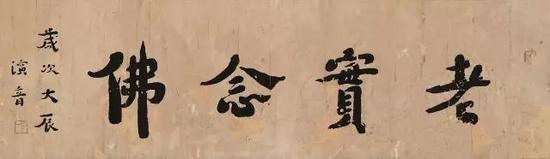 老實念佛
歲次大辰
演音